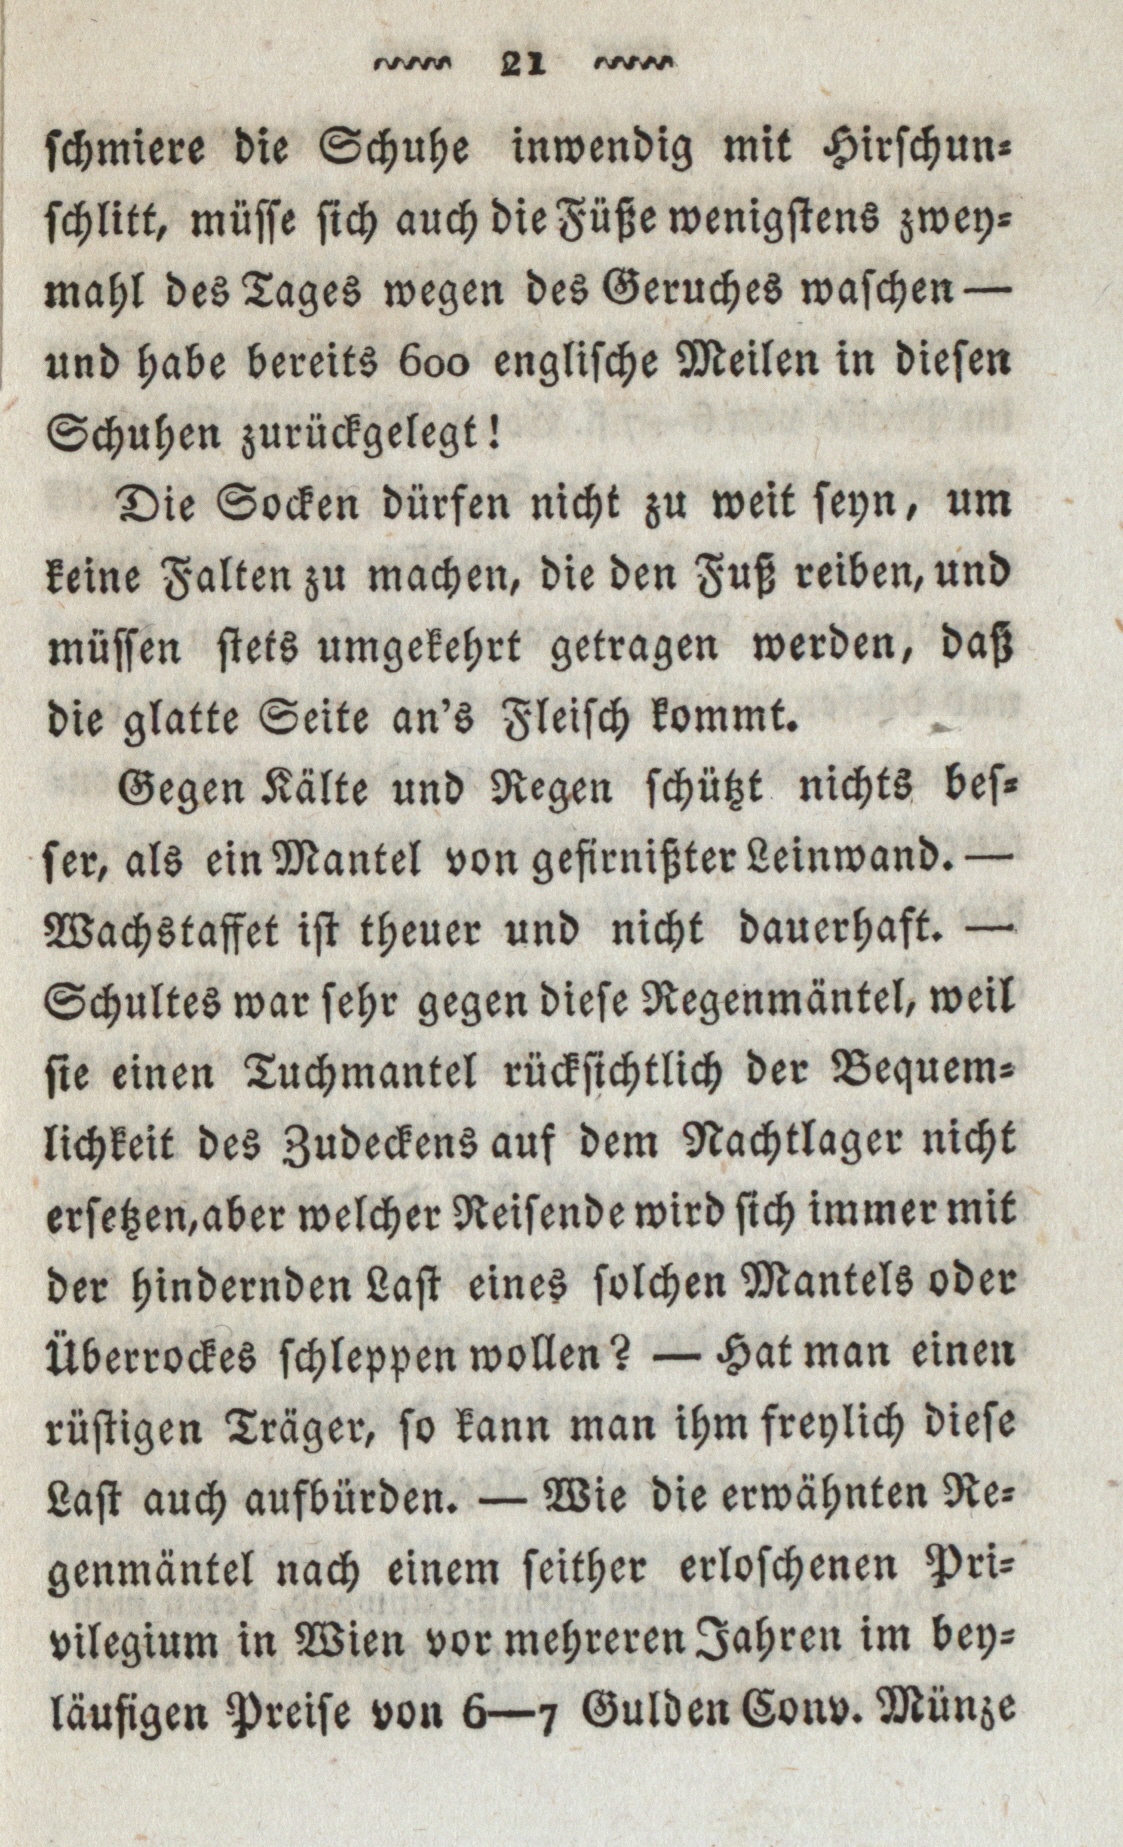 21
schmiere die Schuhe inwendig mit Hirschun-
schlitt, müsse sich auch die Füße wenigstens zwey-
mahl des Tages wegen des Geruches waschen —
und habe bereits 600 englische Meilen in diesen
Schuhen zurückgelegt!
Die Socken dürfen nicht zu weit seyn, um
keine Falten zu machen, die den Fuß reiben, und
müssen stets umgekehrt getragen werden, daß
die glatte Seite an's Fleisch kommt.
Gegen Kälte und Regen schützt nichts bes-
ser, als ein Mantel von gefirnißter Leinwand. —
Wachstaffet ist theuer und nicht dauerhaft. —
Schultes war sehr gegen diese Regenmäntel, weil
sie einen Tuchmantel rücksichtlich der Bequem-
lichkeit des Zudeckens auf dem Nachtlager nicht
ersetzen, aber welcher Reisende wird sich immer mit
der hindernden Last eines solchen Mantels oder
Überrockes schleppen wollen? — Hat man einen
rüstigen Träger, so kann man ihm freylich diese
Last auch aufbürden. — Wie die erwähnten Re-
genmäntel nach einem seither erloschenen Pri-
vilegium in Wien vor mehreren Jahren im bey-
läufigen Preise von 6—7 Gulden Conv. Münze